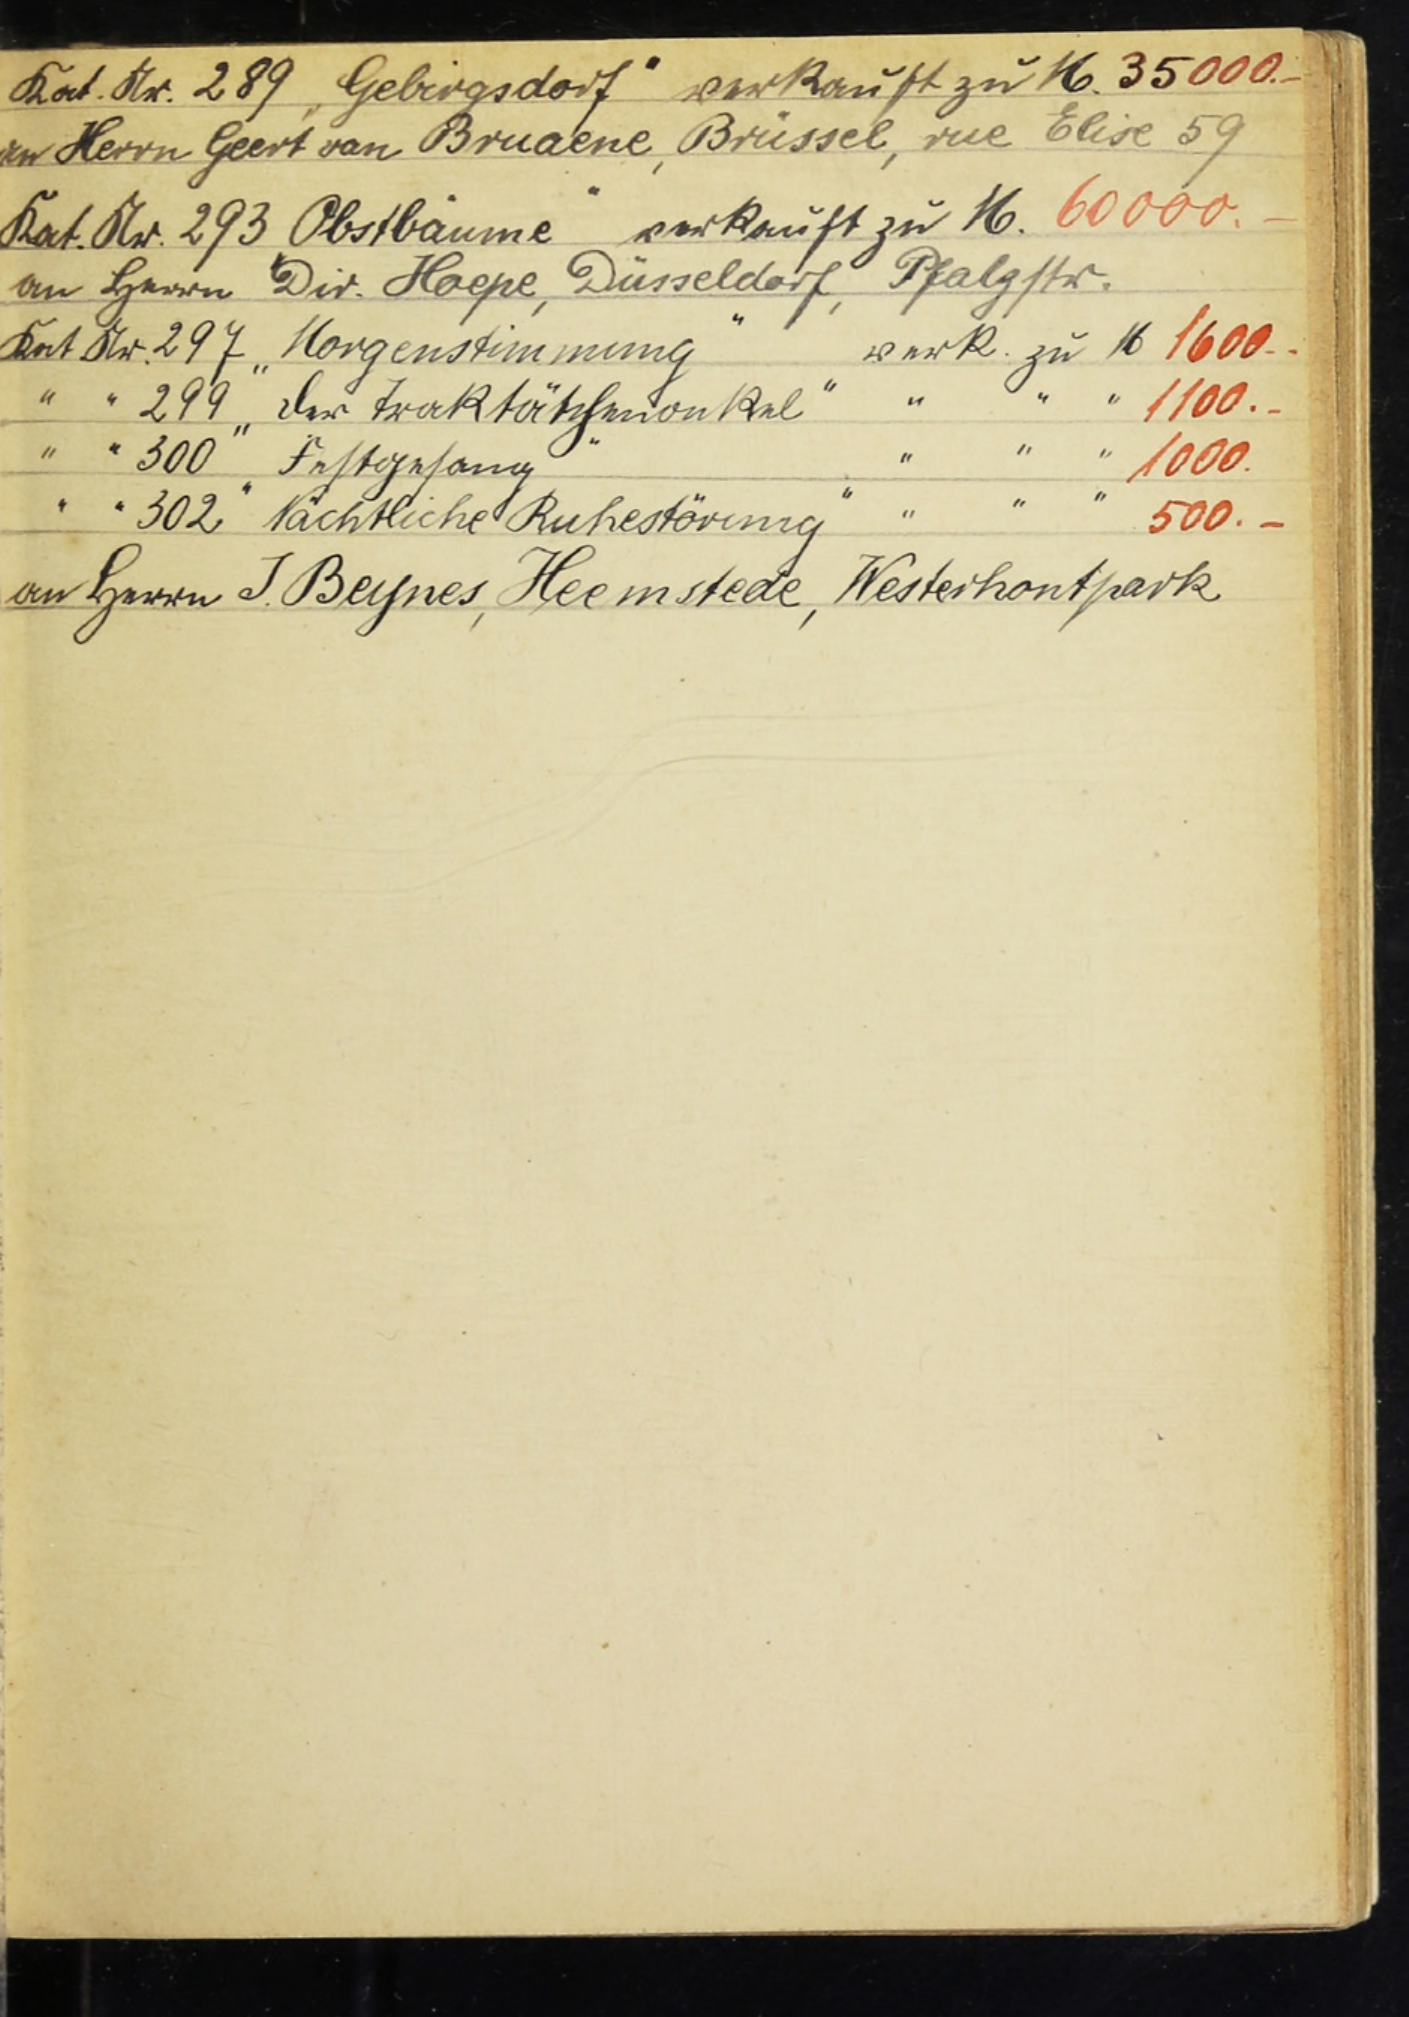 Kat. Nr. 289 „Gebirgsdorf" verkauft zu M. 35000.-
an Herrn Geert van Bruaene, Brüssel, rue Elise 59
Kat. Nr. 293 „Obstbäume" verkauft zu M. 60000.-
an Herrn Dir. Hoepe, Düsseldorf, Pfalzstr.
Kat Nr. 297 „Morgenstimmung" verk. zu M 1600.-
" " 299 „der Traktätchenonkel" " " " 1100.-
" " 300 " Festgesang " " " " 1000.
" " 302 " Nächtliche Ruhestörung" " " " 500.-
an Herrn J. Beynes, Heemstede, Westerhoutpark